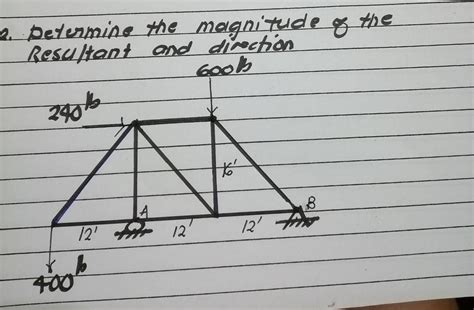 2. Determine the magnitude of the
Resultant and direction
600 lb
240 lb
16'
A
B
12'
12'
12'
400 lb